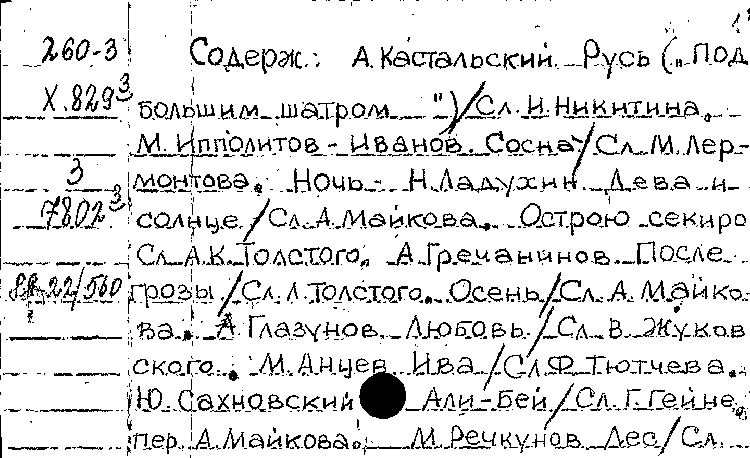 260-3 Содерж.: А. Кастальский. Русь („Под
X.829³ большим шатром ")/Сл. И. Никитина.
М. Ипполитов-Иванов. Сосна/Сл. М. Лер-
3 монтова. Ночь- Н. Ладухин Дева и
7802³ солнце/Сл. А. Майкова. Острою секиро
Сл. А.К. Толстого. А. Гречанинов. После
22/560 грозы/Сл. Л. Толстого. Осень/Сл. А. Майко-
ва. А. Глазунов. Любовь/Сл. В. Жуков
ского. М. Анцев. Ива/Сл. Ф. Тютчева.
Ю. Сахновский Али-Бей/Сл. Г. Гейне,
пер. А. Майкова. М. Речкунов Лес/Сл.